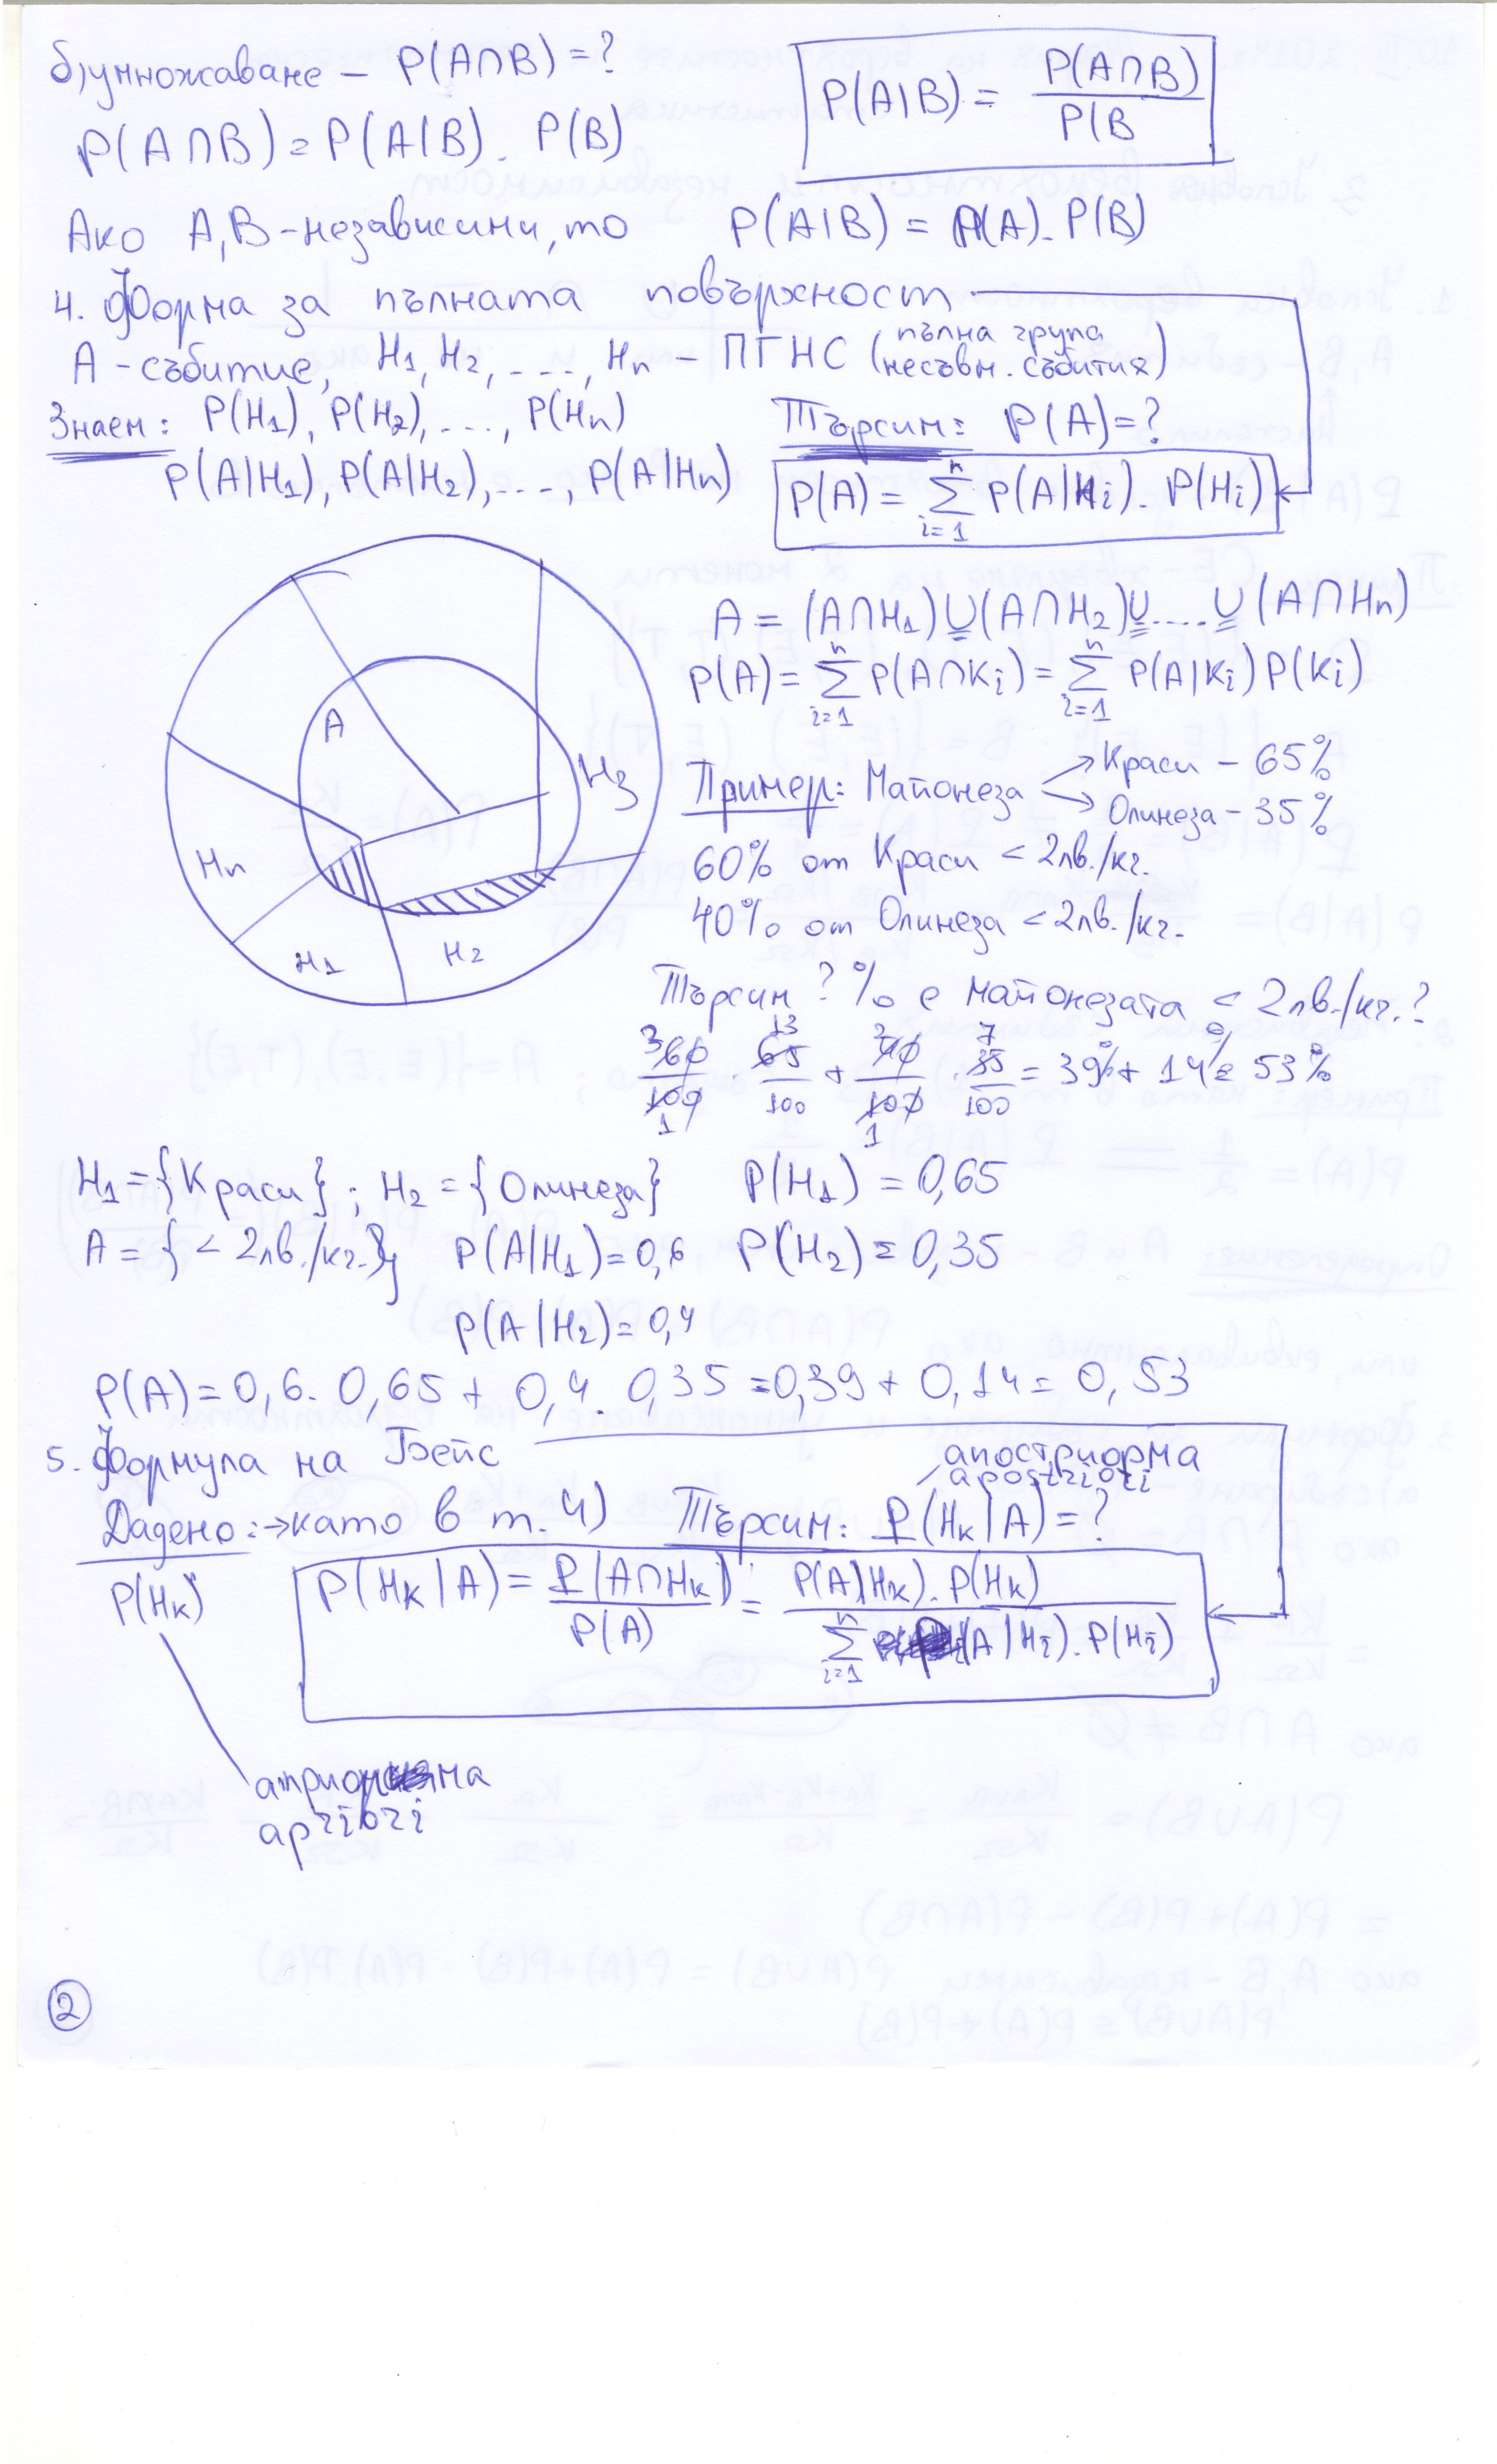 б) умножаване – P(A∩B) = ?
P(A|B) = P(A∩B) / P(B
P(A∩B) = P(A|B) . P(B)
Ако A, B – независими, то P(A|B) = P(A) . P(B)
4. Форма за пълната повърхност
A – събитие, H1, H2, ...., Hn – ПГНС (пълна група несъвм. събития)
Знаем: P(H1), P(H2), ..., P(Hn)
Търсим: P(A) = ?
P(A|H1), P(A|H2), ...., P(A|Hn)
P(A) = n∑i=1 P(A|Hi) . P(Hi)
A
H3
Hn
H1
H2
A = (A∩H1)∪(A∩H2)∪....∪(A∩Hn)
P(A) = n∑i=1 P(A∩Ki) = n∑i=1 P(A|Ki) P(Ki)
Пример: Майонеза
Краси – 65%
Олинеза – 35%
60% от Краси < 2лв./кг.
40% от Олинеза < 2лв./кг.
Търсим ? % е майонезата < 2лв./кг.?
3 60/100 1 . 13 65/100 + 2 40/100 1 . 7 35/100 = 39% + 14% = 53%
H1 = {Краси}; H2 = {Олинеза} P(H1) = 0,65
A = {< 2лв./кг.} P(A|H1) = 0,6 P(H2) = 0,35
P(A|H2) = 0,4
P(A) = 0,6 . 0,65 + 0,4 . 0,35 = 0,39 + 0,14 = 0,53
5. Формула на Бейс
апостриорма
apostriori
Дадено: → като в т. 4) Търсим: P(Hk|A) = ?
P(Hk)
P(Hk|A) = P(A∩Hk) / P(A) = P(A|Hk) . P(Hk) / n∑i=1 P(A|Hi) . P(Hi)
apriori
2